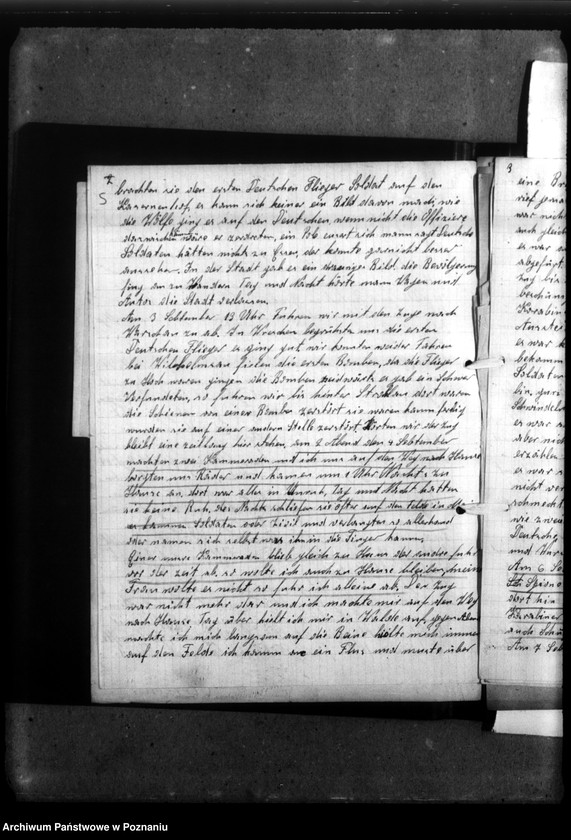 4
5
brachten sie den ersten Deutschen Flieger Soldat auf den
Kasernenhof, er kann sich keiner ein Bild davon mach, wie
die Wölfe ging er auf den Deutschen, wenn nicht die Offiziere
dazwischen wäre er zerdreten, ein Pole sagt Deutsche
Soldaten hätten nichts zu fresen, der konnte garnicht besser
aussehn. In der Stadt gab er ein Bild die Bevölkerung
fing an zu Wandern Tag und Nacht hörte mann Wagen und
Autos die Stadt verlassen.
Am 3 September 13 Uhr Fuhren wir mit den Zuge nach
Warschau zu ab. In Wreschen begrüsste uns die ersten
Deutschen Flieger er ging gut wir konnten weider Fahren
bei Wilhelmsau fielen die ersten Bomben, da die Flieger
zu Hoch waren gingen die Bomben er gab ein Schwer
Verwundeten, so fuhren wir bis hinter dort waren
die Schienen von einer Bombe zerstört sie waren kaum fertig
wurden sie auf einer andern Stelle zerstört der zug
bleibt eine zeitlang hier stehen, am 2 Abend den 4 September
machten zwei Kammeraden und ich uns auf den Weg nach Hause
borgten uns Räder und kamen um 1 Uhr Nachts zu
Hause an, dort war alles in Unruhe, Tag und Nacht hatten
sie keine Ruh, des Nachts schliefen sie öfter auf den felde in
er kammen Soldaten oder Zivil und verlangten so allerhand
oder namen sich selbst was ihm in die Finger kamm.
Einer unser Kammeraden blieb gleich zu Hause der andre fuhr
vor der zeit ab, so wolte ich auch zu Hause bleiben, meine
Frau wolte er nicht so fuhr ich alleine ab. Der Zug
war nicht mehr dar und ich machte mir auf den Weg
nach Hause Tag über hielt ich mir in Walde auf, gegen Abend
machte ich mich langsam auf die Beine hielte mich immer
auf den Felde ich kamm an ein Flus und muste über
3
eine
rief
war nicht
auch gleich
er war
abgefürt
Zug bin
Karabin
er war
bekamm
Soldaten
er war
aber nich
erzählen
er war
nicht ver
wie zwei
Deutsche
und
Am 6 Se
dort hin
Karabiner
auch
Am 7 Seb
Archiwum Państwowe w Poznaniu